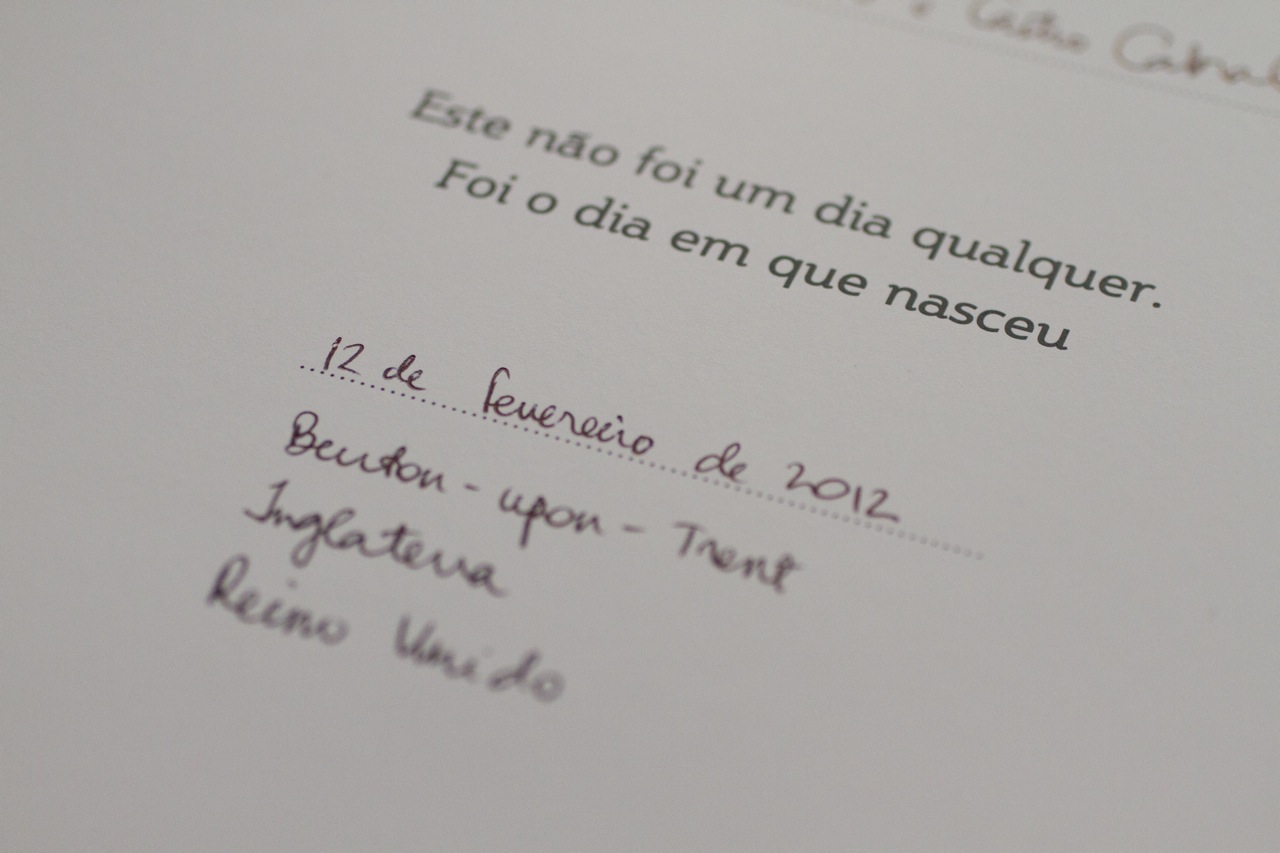 Castro Cabral
Este não foi um dia qualquer.
Foi o dia em que nasceu
12 de fevereiro de 2012
Burton - upon - Trent
Inglaterra
Reino Unido